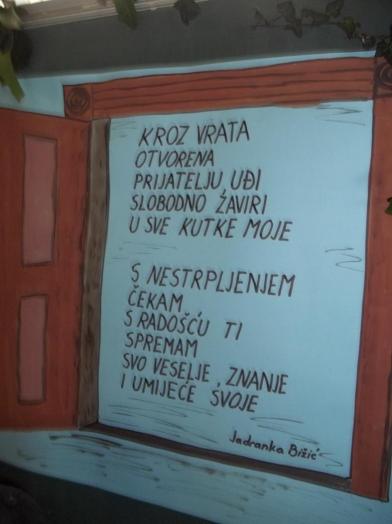 KROZ VRATA
OTVORENA
PRIJATELJU, UĐI
SLOBODNO ŽAVIRI
U SVE KUTKE MOJE
S NESTRPLJENJEM
ČEKAM
S RADOŠĆU TI
SPREMAM
SVO VESELJE, ZNANJE
I UMIJEĆE SVOJE
Jadranka Bižić